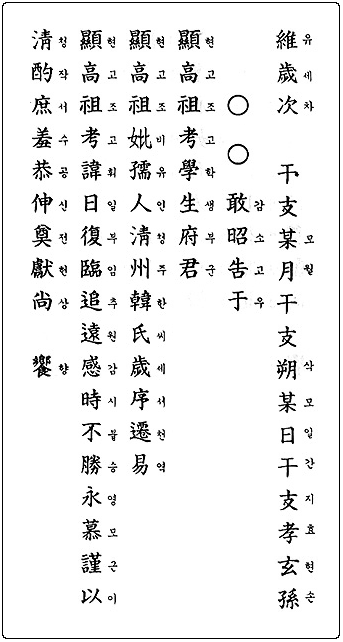 維歲次 干支某月干支朔某日干支孝玄孫
유세차 모월 삭모일간지효현손
○○ 敢昭告于
감소고우
顯高祖考學生府君
현고조고학생부군
顯高祖妣孺人清州韓氏歲序遷易
현고조비유인청주한씨세서천역
顯高祖考諱日復臨追遠感時不勝永慕謹以
현고조고휘일부임추원감시불승영모근이
清酌庶羞恭伸奠獻尚 饗
청작서수공신전헌상 향